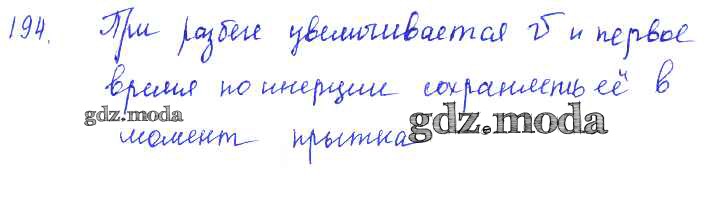 194. При разбеге увеличивается υ и первое
время по инерции сохранять её в
gdz.moda
момент прыжка gdz.moda